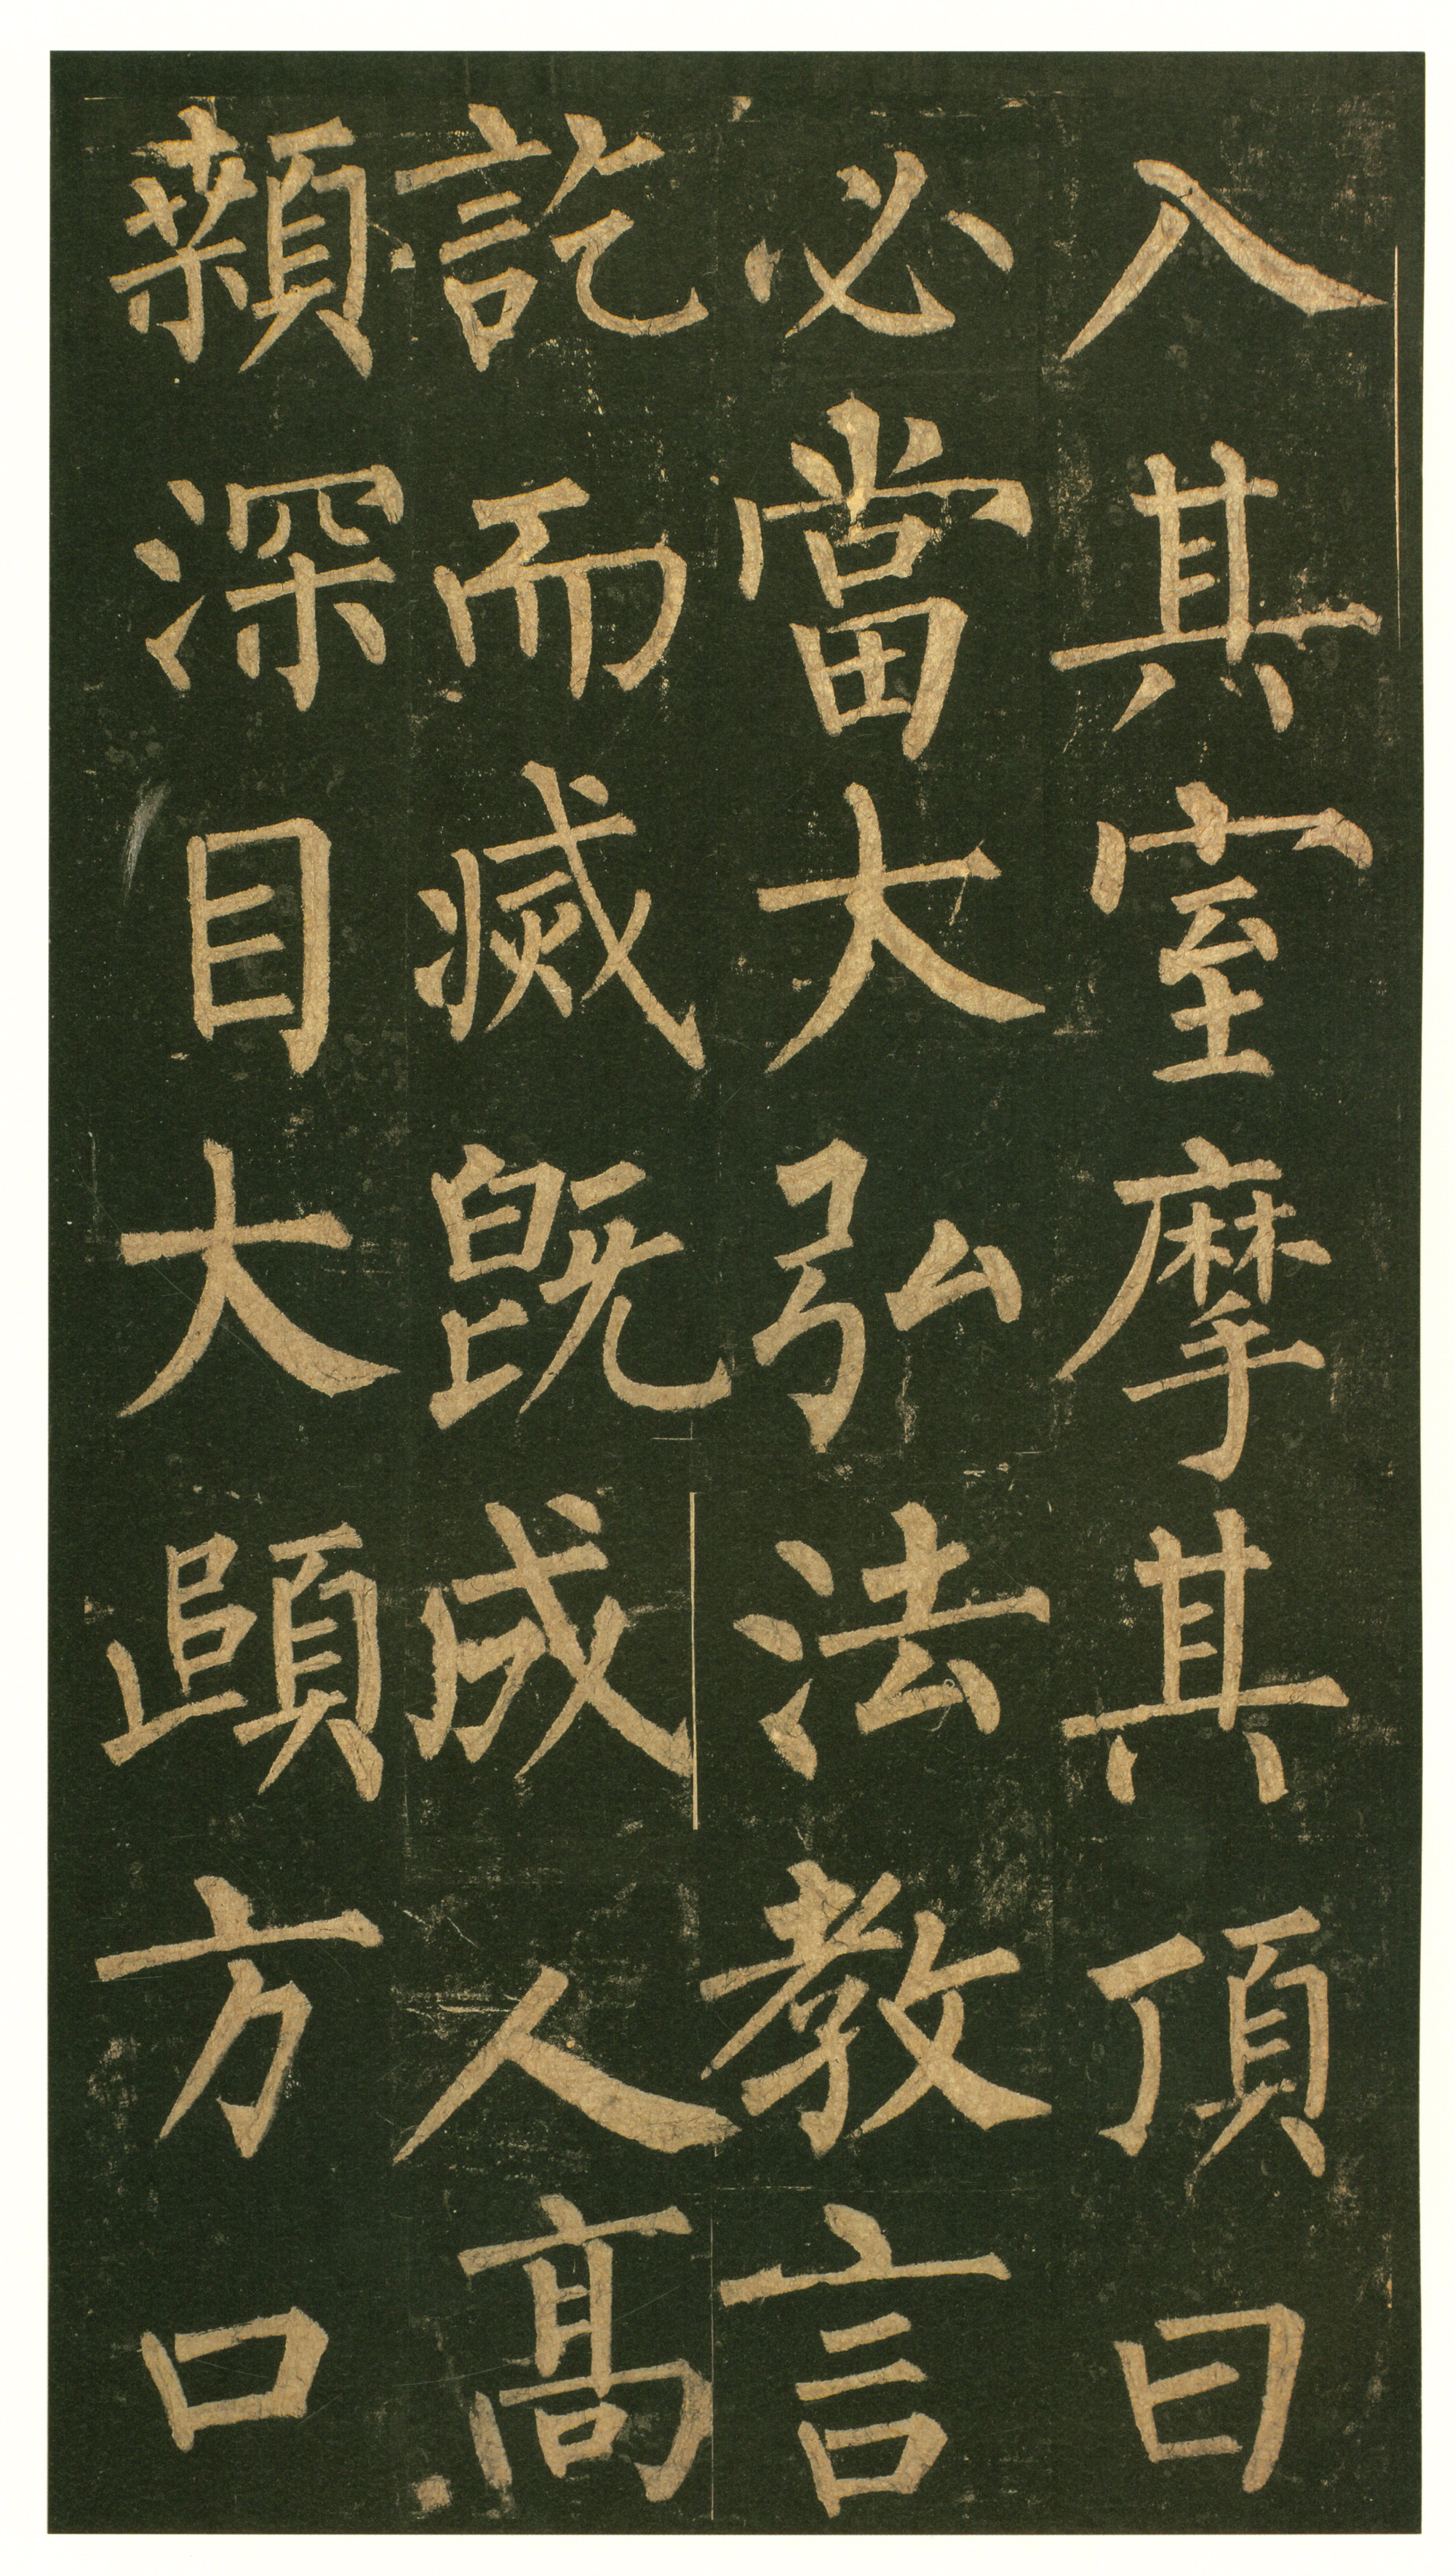 入其室摩其頂曰
必當大弘法教言
訖而滅既成人高
顙深目大頤方口